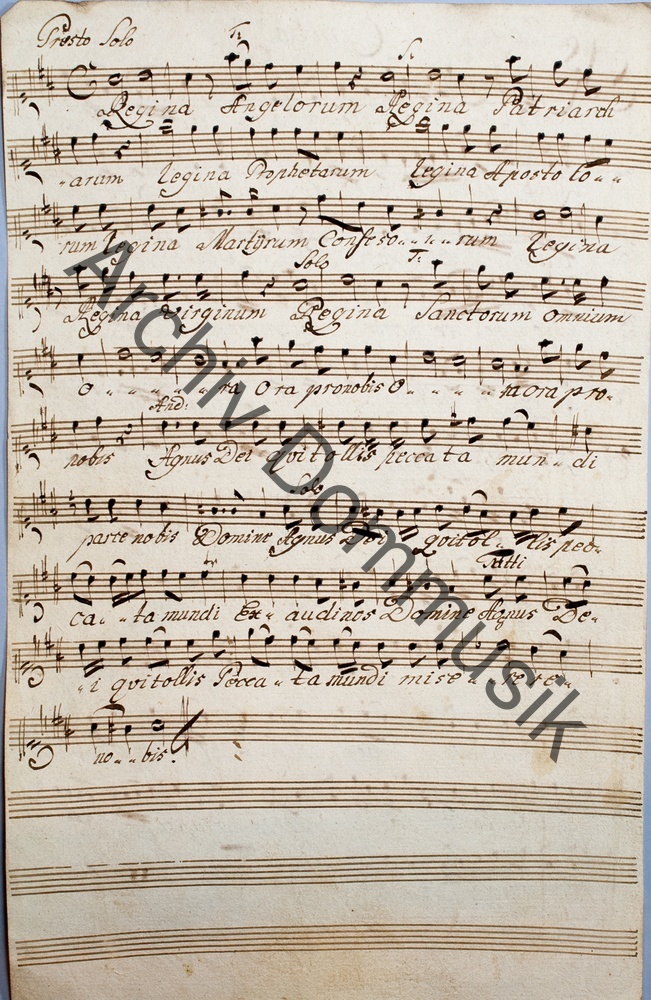 Presto Solo Tr.
Regina Angelorum Regina Patriarch
"arum regina Prophetarum regina Aposto lo " "
rum regina Martyrum Confeso " " " rum regina
Solo
Regina Virginum Regina Sanctorum omnium
o " " " " " ra Ora pronobis O " " " " " ra ora pro"
And:
nobis Agnus Dei qui tollis peccata mun " di
Solo
parce nobis Domine Agnus Dei qui tol " lis pec"
Tutti
ca " ta mundi Ex " audi nos Domine Agnus De"
"i qui tollis Pecca " ta mundi mise " re re "
no " " bis.
Archiv Dommusik